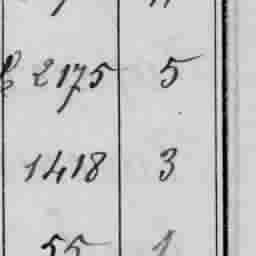 2175 5
1418 3
55 1